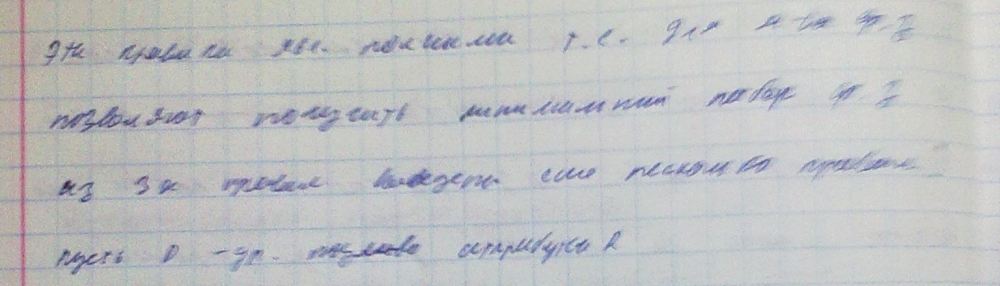 Эти правила явл. полными т.е. для мн-ва ф.з
позволяют получить минимальный набор ф.з
из 3х правил выведены еще несколько правил
пусть D - др. атрибуты R